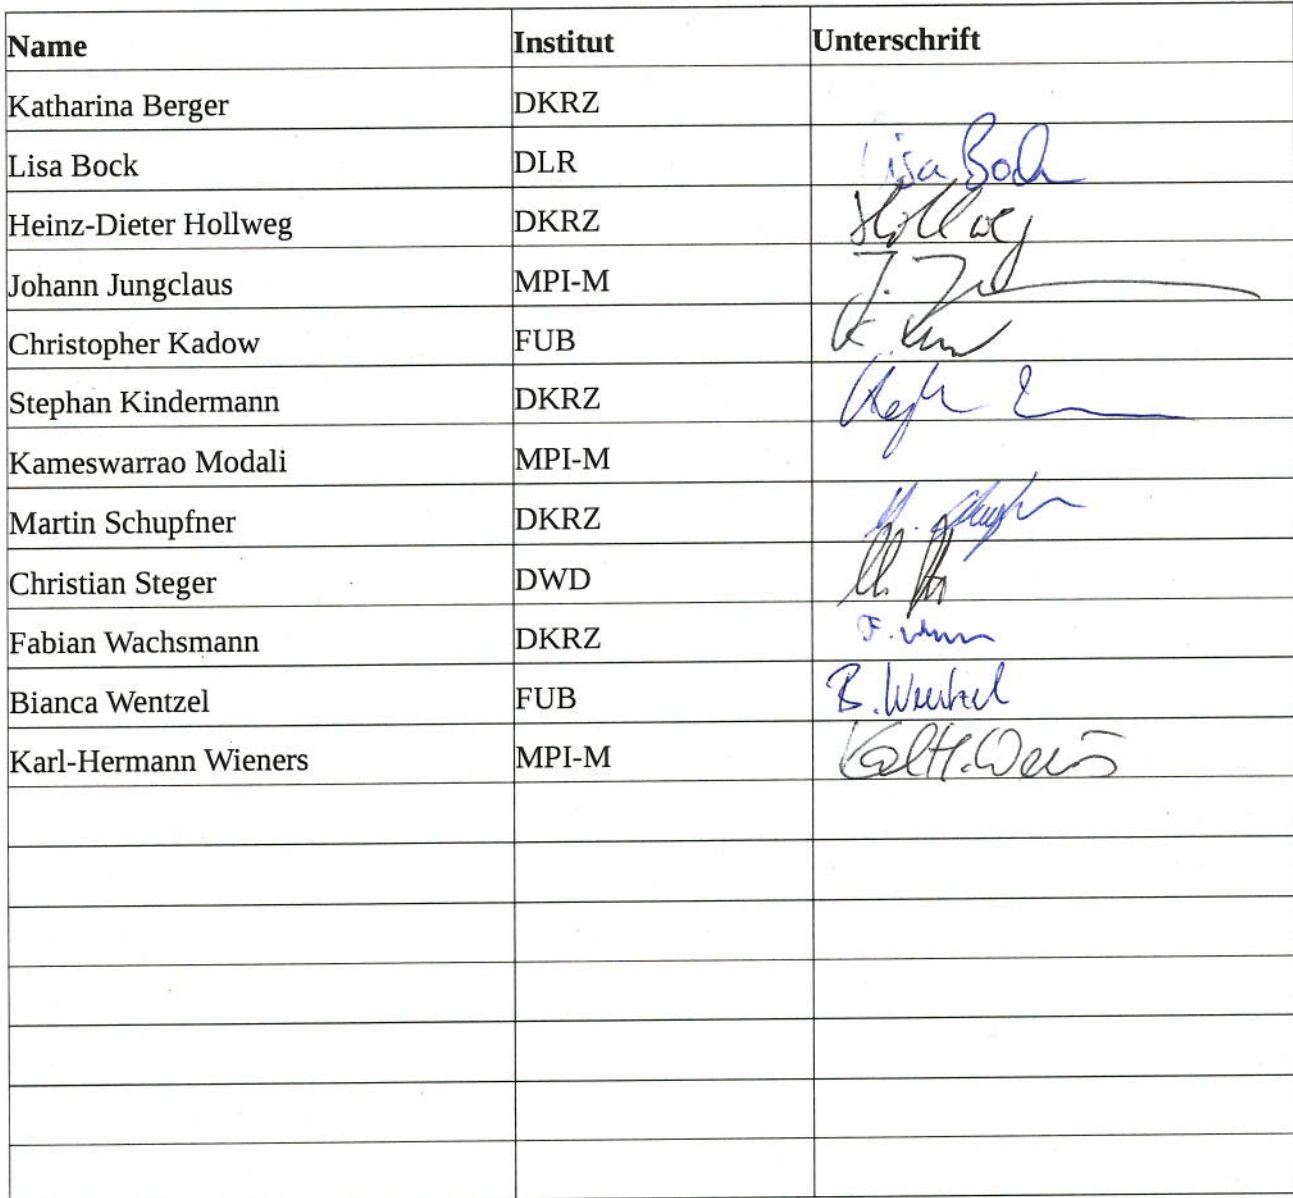 Name Institut Unterschrift
Katharina Berger DKRZ
Lisa Bock DLR Lisa Bock
Heinz-Dieter Hollweg DKRZ Hollweg
Johann Jungclaus MPI-M J.
Christopher Kadow FUB
Stephan Kindermann DKRZ
Kameswarrao Modali MPI-M
Martin Schupfner DKRZ
Christian Steger DWD
Fabian Wachsmann DKRZ F.
Bianca Wentzel FUB B. Wentzel
Karl-Hermann Wieners MPI-M